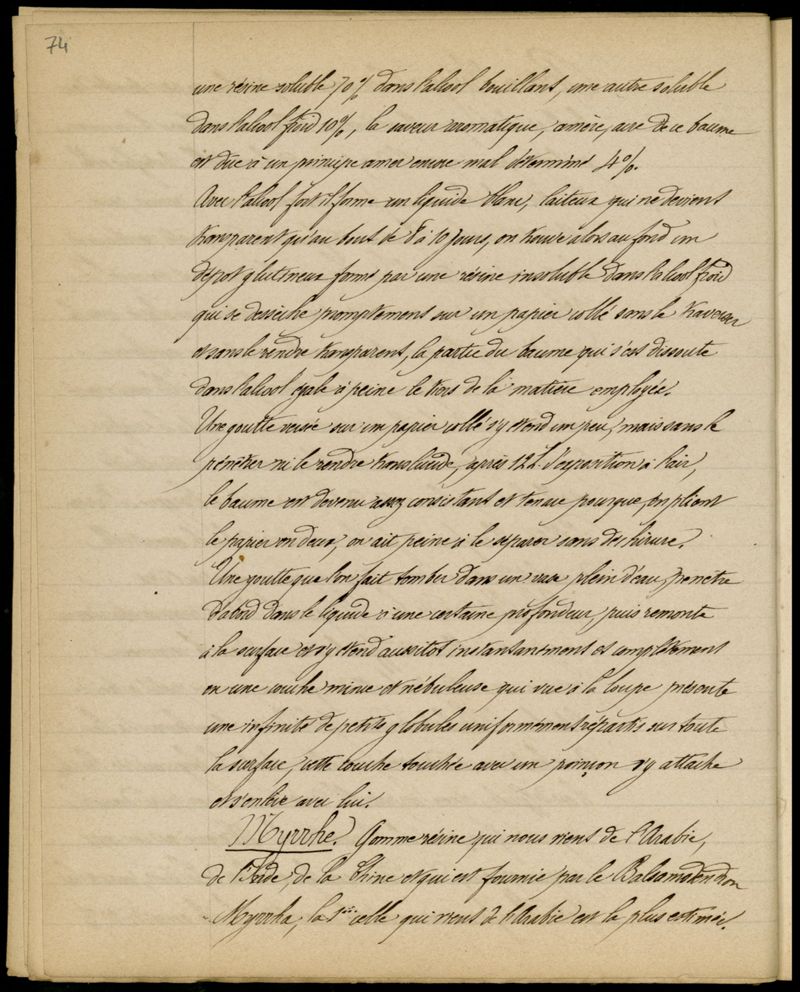 74
une résine soluble 70% dans l'alcool bouillant, une autre soluble
dans l'alcool froid 10%, la saveur aromatique, amère, acre de ce baume
est due à un principe amer encore mal déterminé 4%.
Avec l'alcool fort il forme un liquide blanc, laiteux qui ne devient
transparent qu'au bout de 8 à 10 jours, on trouve alors au fond un
dépot glutineux formé par une résine insoluble dans l'alcool froid
qui se dessèche promptement sur un papier collé sans le traverser
et sans le rendre transparent, la partie du baume qui s'est dissoute
dans l'alcool égale à peine le tiers de la matière employée.
Une goutte versée sur un papier collé s'y étend un peu, mais sans le
pénétrer ni le rendre translucide, après 12 h. d'exposition à l'air,
le baume est devenu assez consistant et tenace pour que, en pliant
le papier en deux, on ait peine à le séparer sans déchirure.
Une goutte que l'on fait tomber dans un vase plein d'eau, pénètre
d'abord dans le liquide à une certaine profondeur, puis remonte
à la surface et s'y étend aussitot instantanément et complètement
en une couche mince et nébuleuse qui vue à la loupe présente
une infinité de petits globules uniformément répartis sur toute
la surface, cette couche touchée avec un poinçon s'y attache
et s'enlève avec lui.
Myrrhe. Gomme résine qui nous vient de l'Arabie,
de l'Inde, de la Chine et qui est fournie par le Balsamodendron
Myrrha, la 1re celle qui vient de l'Arabie est la plus estimée.